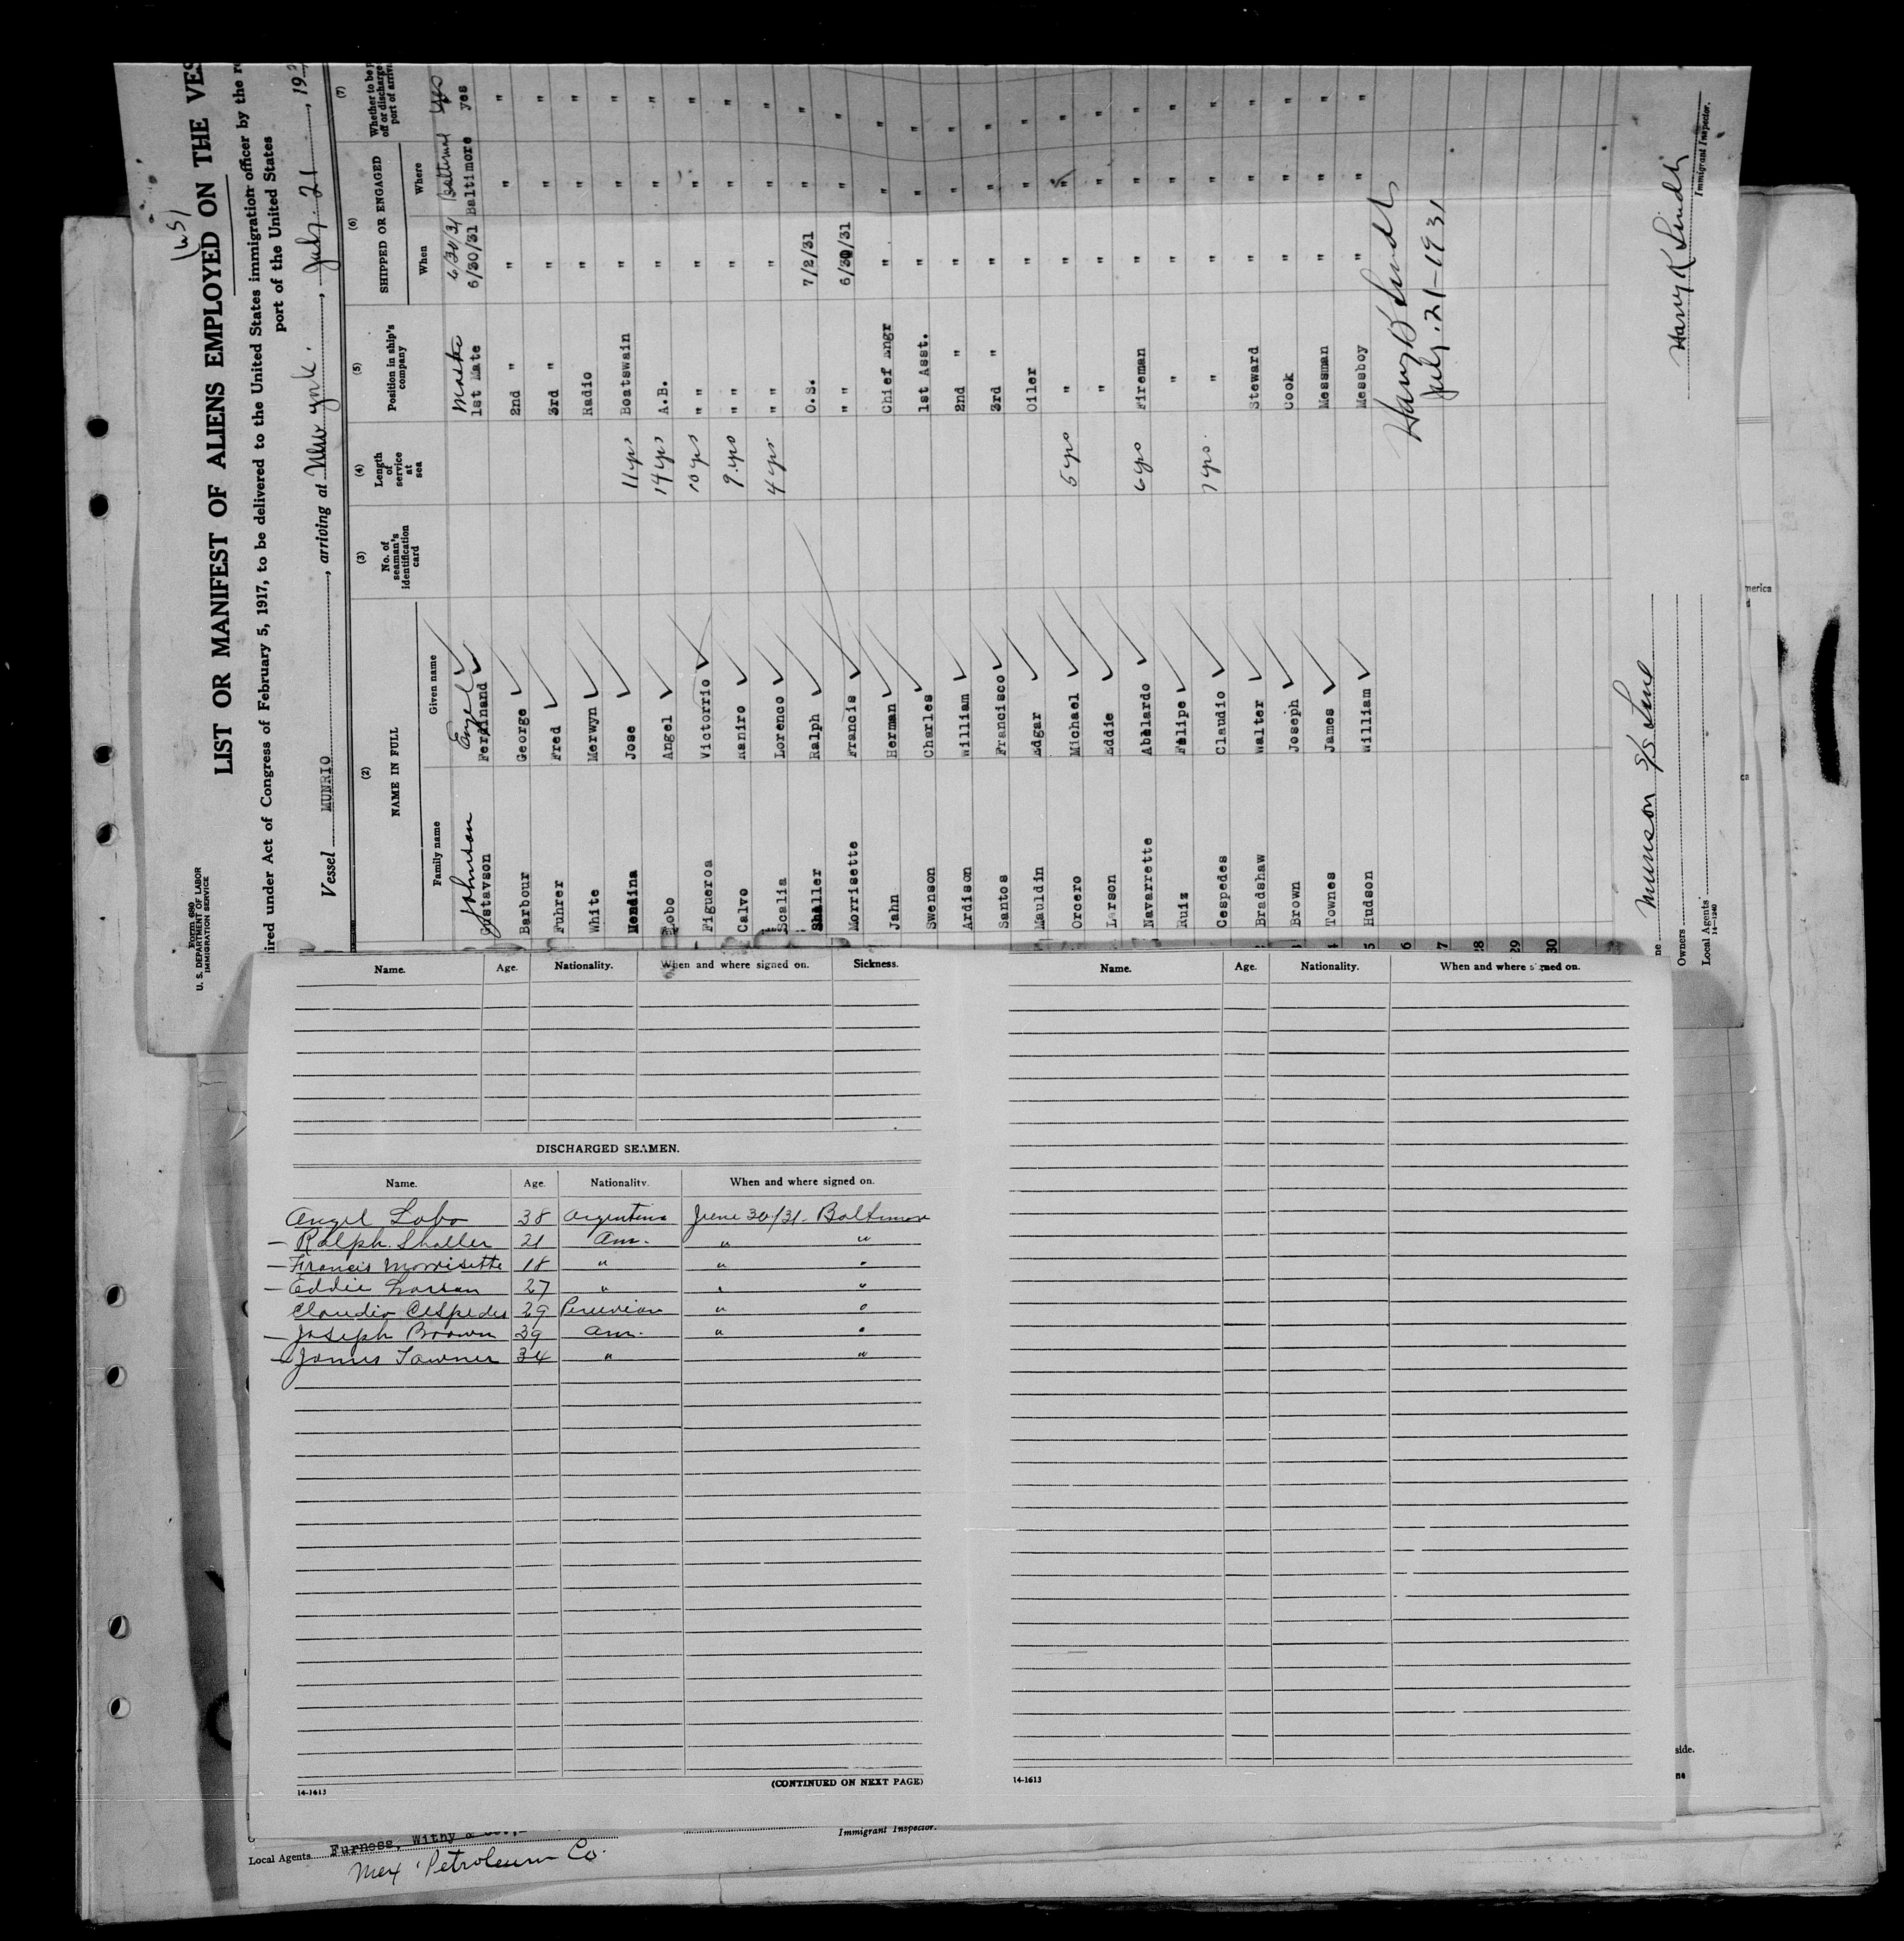 (WS)
Form 680
U. S. DEPARTMENT OF LABOR
IMMIGRATION SERVICE
LIST OR MANIFEST OF ALIENS EMPLOYED ON THE VES
ired under Act of Congress of February 5, 1917, to be delivered to the United States immigration officer by the re
port of the United States
Vessel MUNRIO, arriving at New York, July 21, 19
(2) (3) (4) (5) (6) (7)
NAME IN FULL
Family name Given name
No. of seaman's identification card
Length of service at sea
Position in ship's company
SHIPPED OR ENGAGED
When Where
Whether to be off or discharge port of arriv
Johnson Master 6/30/31 Baltimore yes
Gustavson Ferdinand 1st Mate 6/30/31 Baltimore yes
Barbour George 2nd " " " "
Fuhrer Fred 3rd " " " "
White Merwyn Radio " " "
Mendina Jose 11 yrs Boatswain " " "
Lobo Angel 14 yrs A.B. " " "
Figueroa Victorrio 10 yrs " " " " "
Calvo Raniro 9 yrs " " " " "
Scalia Lorenco 4 yrs " " " " "
Shaller Ralph O.S. 7/2/31 " "
Morrisette Francis " " 6/30/31 " "
Jahn Herman Chief Engr " " "
Swenson Charles 1st Asst. " " "
Ardison William 2nd " " " "
Santos Francisco 3rd " " " "
Mauldin Edgar Oiler " " "
Orcero Michael 5 yrs " " " "
Larson Eddie " " " "
Navarrette Abelardo 6 yrs Fireman " " "
Ruiz Felipe " " " "
Cespedes Claudio 7 yrs. " " " "
Bradshaw Walter Steward " " "
Brown Joseph Cook " " "
Townes James Messman " " "
5 Hudson William Messboy " " "
6
7
28
29
30
July. 21-1931
ne Munson S/S Line
Owners
Local Agents
14-1240
Immigrant Inspector.
Name. Age. Nationality. When and where signed on. Sickness.
DISCHARGED SEAMEN.
Name. Age. Nationality. When and where signed on.
Angel Lobo 38 Argentina June 30/31- Baltimore
- Ralph Shaller 21 Am. " "
- Francis Morrisette 18 " " "
- Eddie Larson 27 " " "
Claudio Cespedes 29 Peruvian " "
- Joseph Brown 39 Am. " "
- James Towner 34 " "
14-1613 (CONTINUED ON NEXT PAGE)
Name. Age. Nationality. When and where signed on.
14-1613
merica
side.
Local Agents Furness, Withy &
Mex Petroleum Co.
Immigrant Inspector.